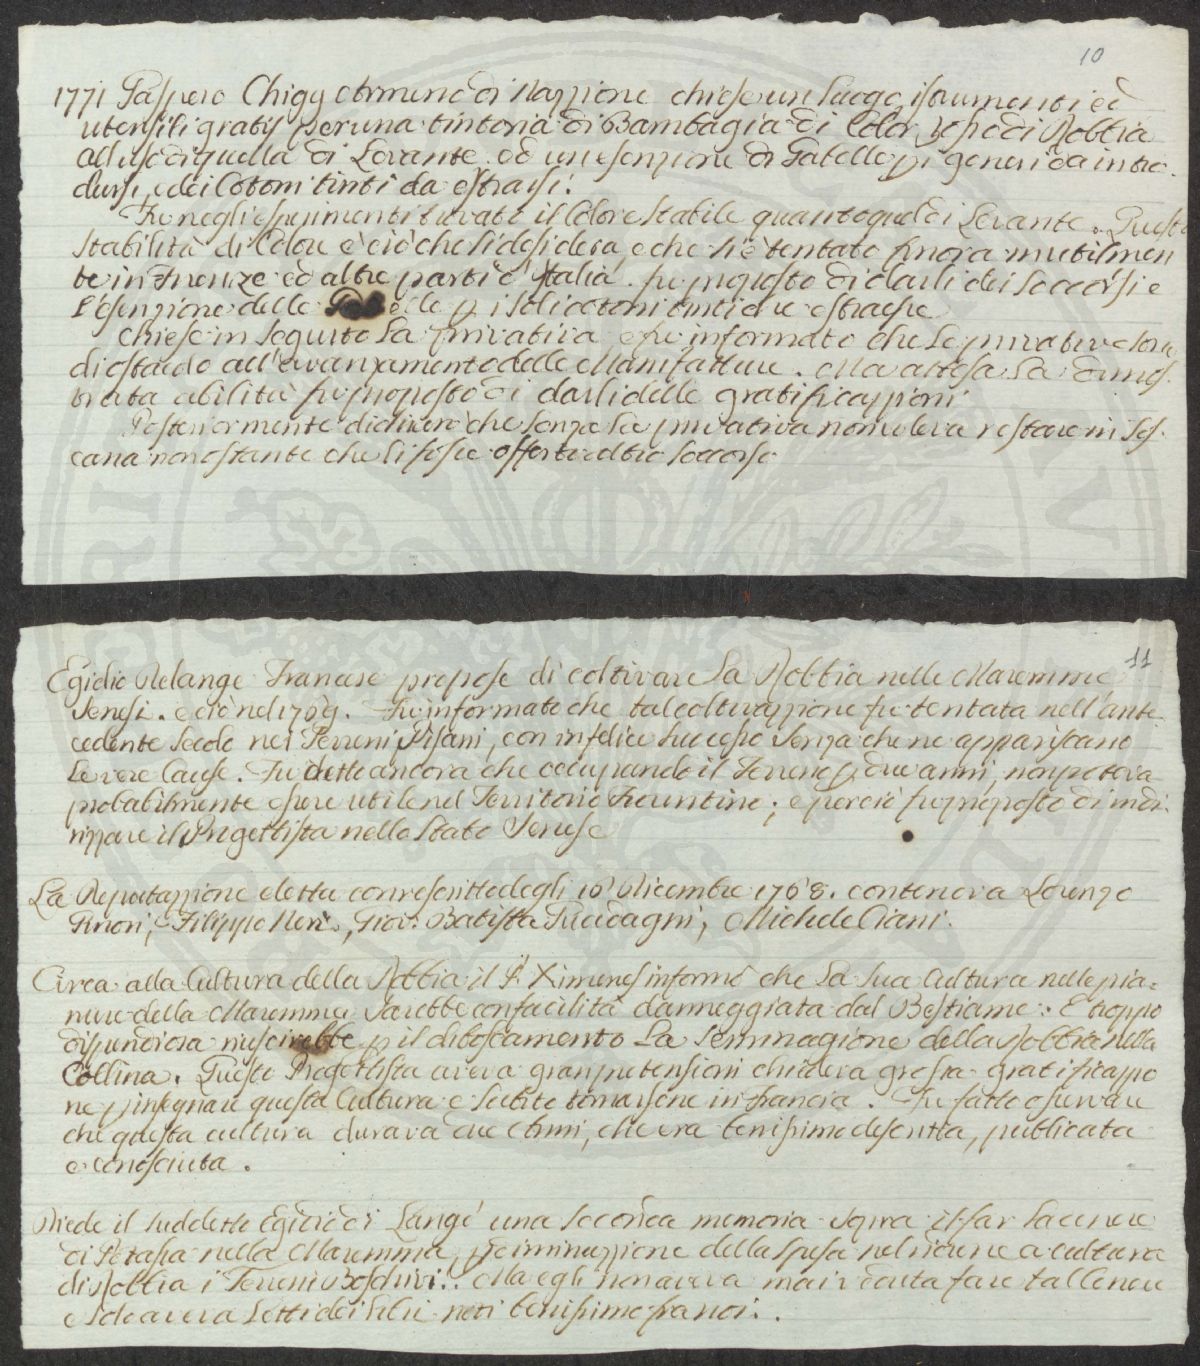 10
1771 Gaspero Chigy Armeno di Nazzione chiese un luogo, istrumenti ed
utensili gratis per una tintoria di Bambagia di Color rosso di Robbia
all uso di quella di Levante ed un esenzione di Gabelle pi generi da intro-
dursi, e dei Cotoni tinti da estrarsi.
Fu negli esperimenti trovato il Colore stabile quanto quel di Levante. Questa
stabilità di Colore è ciò che si desidera e che si è tentato finora inutilmen
te in Firenze ed altre parti d'Italia. fu proposto di darli dei soccorsi e
l'esenzione delle Gabelle p i soli cotoni tinti da estraere
Chiese in seguito la privativa e fu informato che le privative sono
di ostacolo all'avanzamento delle Manifatture. Ma attesa la dimos-
trata abilità fu proposto di darli delle gratificazzioni
Posteriormente dichiarò che senza la privativa non voleva restare in Tos-
cana nonostante che li fosse offerto altro soccorso
11
Egidio Delange Francese propose di coltivare la Robbia nelle Maremme
Senesi. e ciò nel 1769. Fu informato che tal coltivazzione fu tentata nell'ante-
cedente Secolo nei Terreni Pisani, con infelice successo senza che ne appariscano
le vere Cause. Fu detto ancora che occupando il Terreno p due anni, non poteva
probabilmente essere utile nel Territorio Fiorentino; e perciò fu proposto di indi-
rizzare il Progettista nello Stato Senese
La Deputazzione eletta con rescritto degli 16 Dicembre 1768. conteneva Lorenzo
Ginori, Filippo Neri, Giov: Batista Guadagni, Michele Ciani.
Circa alla Cultura della Robbia il P. Ximenes informò che la sua Cultura nelle pia-
nure della Maremma sarebbe con facilità danneggiata dal Bestiame: E troppo
dispendiosa riuscirebbe p il diboscamento la seminagione della Robbia nella
Collina. Questo Progettista aveva gran pretensioni chiedeva grossa gratificazzio
ne p insegnare questa Cultura e subito tornarsene in Francia. Fu fatto osservare
che questa cultura durava due Anni, che era benissimo descritta, pubblicata
e conosciuta.
Diede il suddetto Egidio di Langé una seconda memoria sopra il far la cenere
di Potassa nella Maremma, p diminuzzione della spesa nel ridurre a cultura
di Robbia i Terreni Boschivi. Ma egli non aveva mai veduta fare tal Cenere
e solo aveva letti dei libri noti benissimo fra noi.